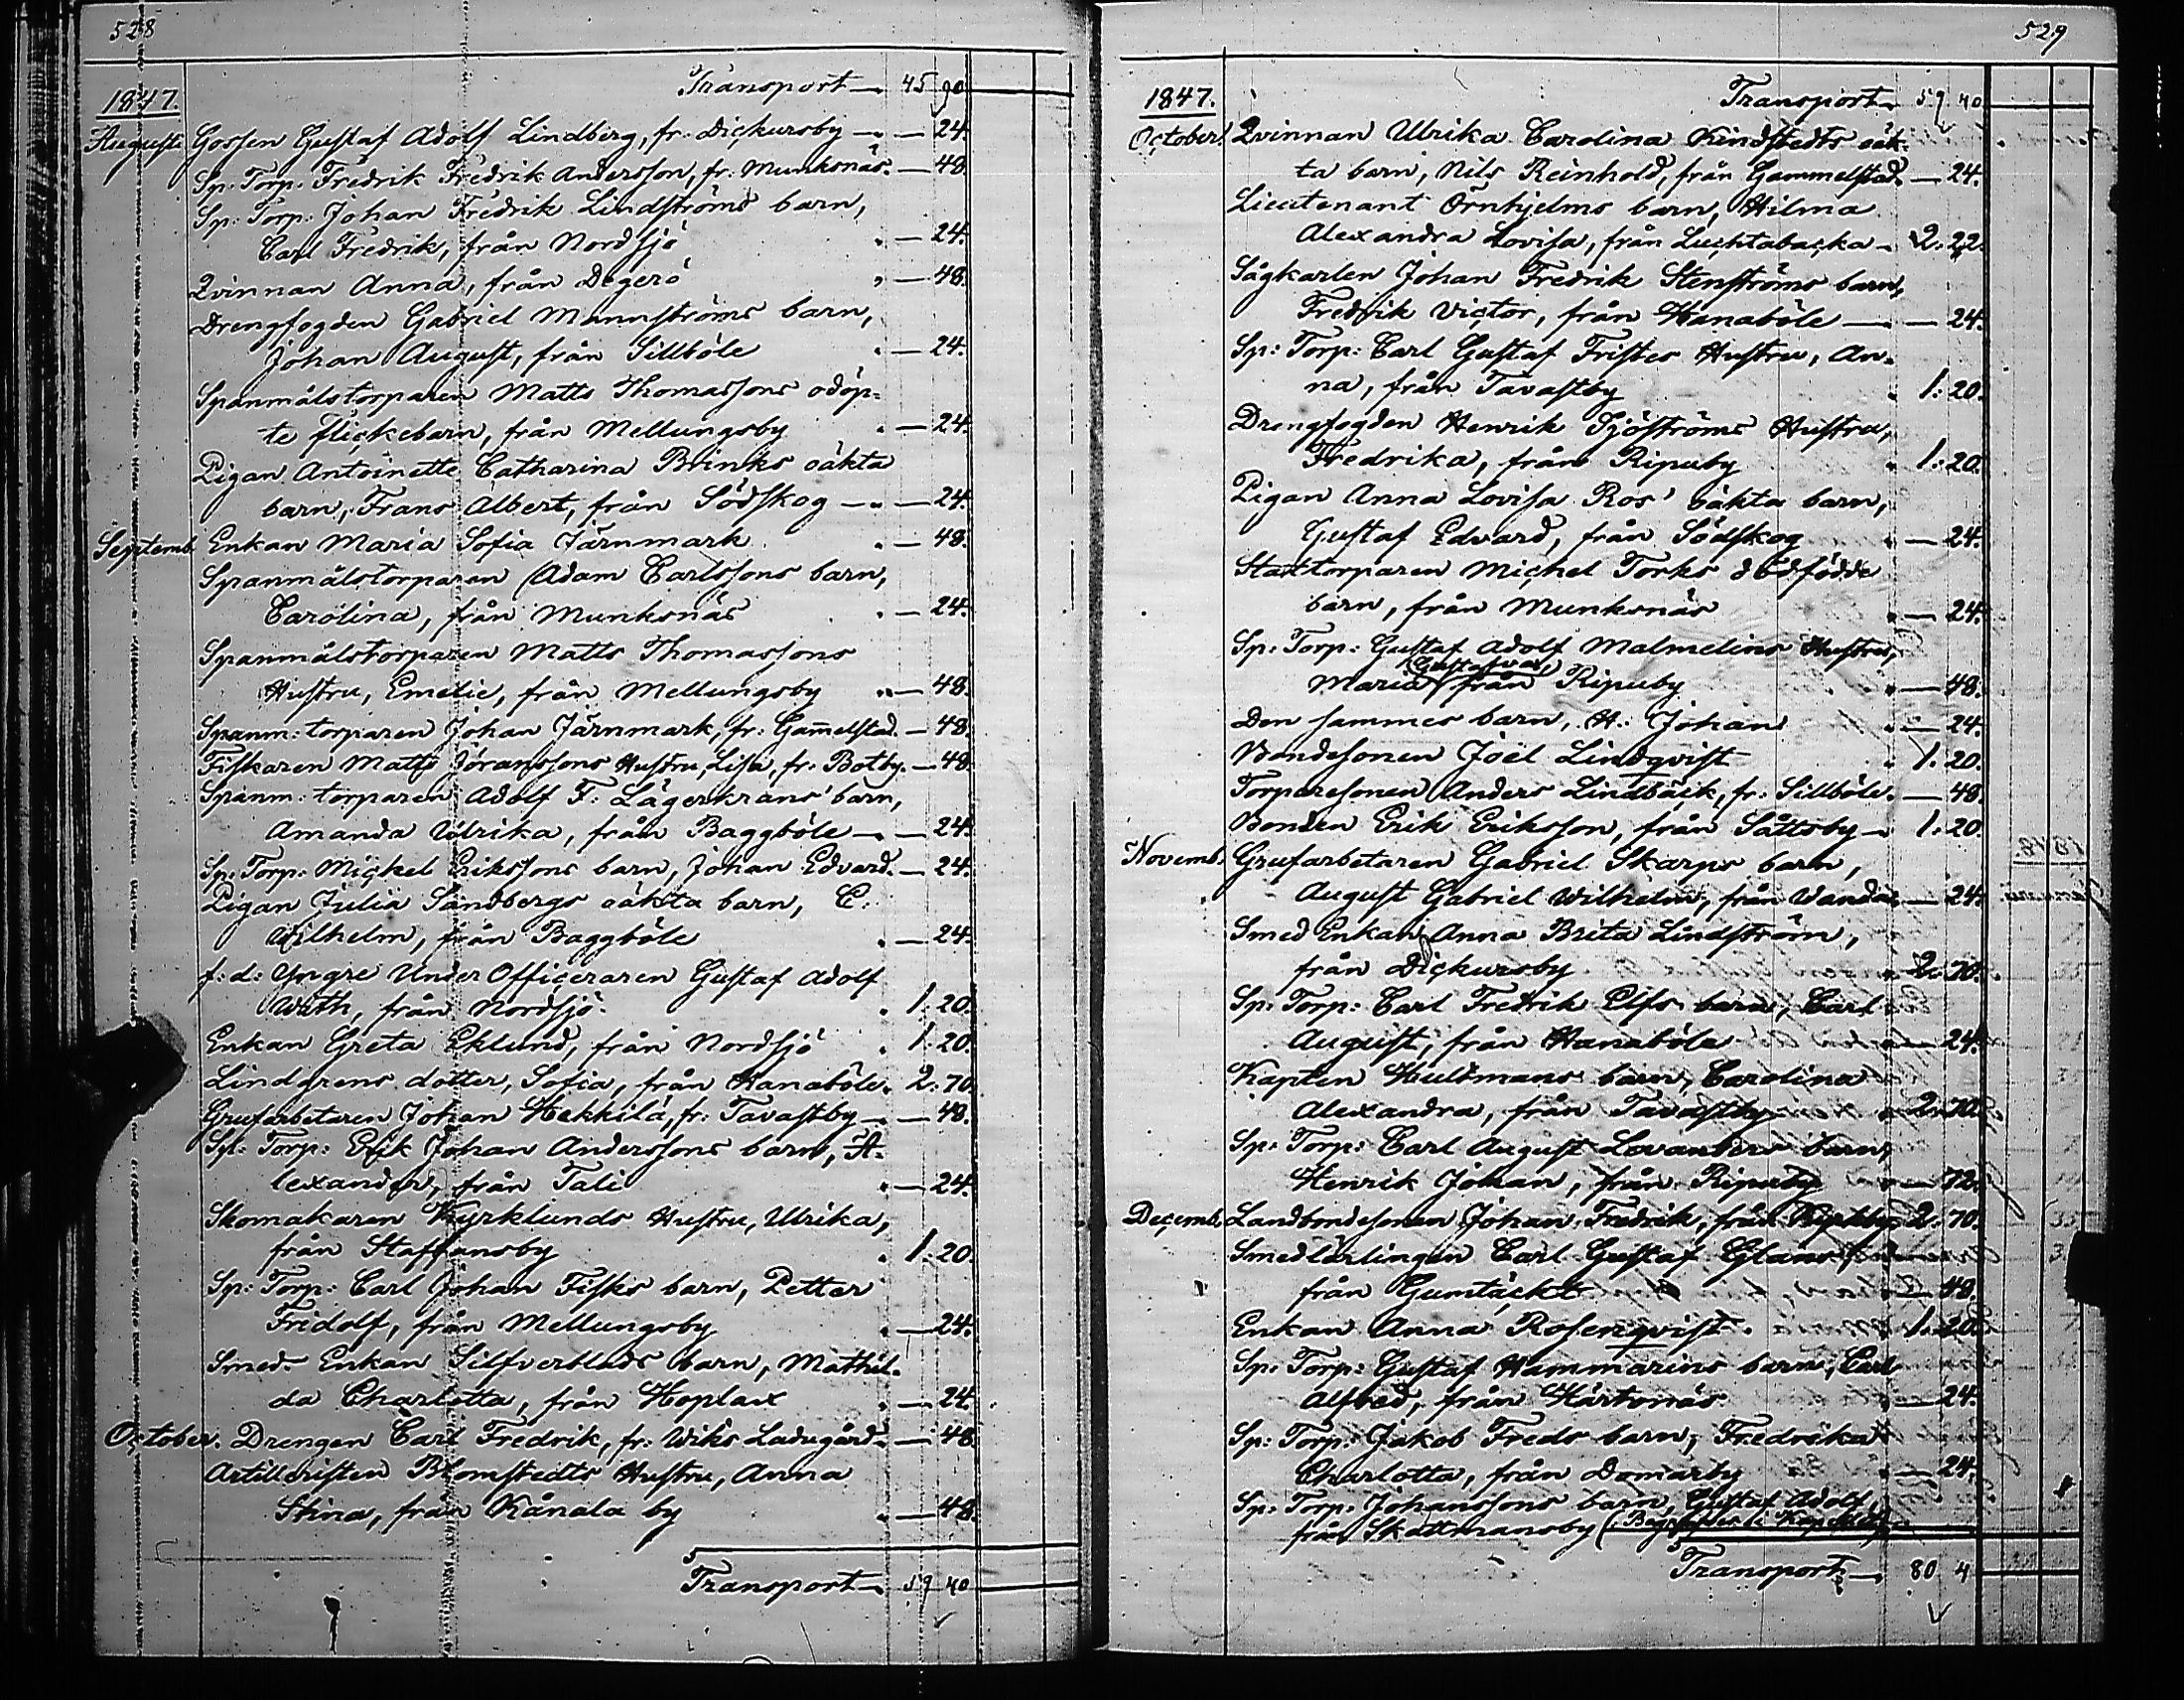 528
Transport — 45 90
1847.
Augusti Gossen Gustaf Adolf Lindberg, fr: Dickursby — — 24.
Sp: Torp: Fredrik Fredrik Andersson, fr: Munksnäs. — 48.
Sp: Torp: Johan Fredrik Lindströms barn,
Carl Fredrik, från Nordsjö — 24.
Qvinnan Anna, från Degerö — 48.
Drengfogden Gabriel Mannströms barn,
Johan August, från Sillböle — 24.
Spanmålstorparen Matts Thomassons odöp-
te flickebarn, från Mellungsby — 24.
Pigan Antoinette Catharina Brinks oäkta
barn, Frans Albert, från Södskog — — 24.
Septemb. Enkan Maria Sofia Järnmark — 48.
Spanmålstorparen Adam Carlssons barn,
Carolina, från Munksnäs — 24.
Spanmålstorparen Matts Thomassons
Hustru, Emelie, från Mellungsby — 48.
Spanm: torparen Johan Järnmark, fr: Gam̄elstad. — 48.
Fiskaren Matts Göranssons Hustru, Lisa, fr: Botby. — 48.
Spanm: torparen Adolf F: Lagerkrans' barn,
Amanda Ulrika, från Baggböle — — 24.
Sp: Torp: Mickel Erikssons barn, Johan Edvard. — 24.
Pigan Julia Sandbergs oäkta barn, C:
Wilhelm, från Baggböle — 24.
f: d: Yngre Under Officeraren Gustaf Adolf
Wath, från Nordsjö 1: 20.
Enkan Greta Eklund, från Nordsjö 1: 20.
Lindgrens dotter, Sofia, från Hanaböle. 2: 70.
Grufarbetaren Johan Hekkilä, fr: Tavastby — — 48.
Sp: Torp: Erik Johan Anderssons barn, A-
lexander, från Tali — 24.
Skomakaren Kyrklunds Hustru, Ulrika,
från Staffansby 1: 20.
Sp: Torp: Carl Johan Fisks barn, Petter
Fridolf, från Mellungsby — 24.
Smed- Enkan Silfverblads barn, Mathil-
da Charlotta, från Hoplax — 24.
October. Drengen Carl Fredrik, fr: Wiks Ladugård. — 48.
Artilleristen Blomstedts Hustru, Anna
Stina, från Kånala by — 48.
Transport — 59 40
529
1847. Transport — 59 40
October. Qvinnan Ulrika Carolina Kindstedts oäk-
ta barn, Nils Reinhold, från Gammelstad. — 24.
Lieutenant Örnhjelms barn, Hilma
Alexandra Lovisa, från Luchtabacka — 2: 22.
Sågkarlen Johan Fredrik Stenströms barn,
Fredrik Victor, från Hanaböle — — 24.
Sp: Torp: Carl Gustaf Fristes Hustru, An-
na, från Tavastby 1: 20.
Drengfogden Henrik Sjöströms Hustru,
Fredrika, från Ripuby 1: 20.
Pigan Anna Lovisa Ros' oäkta barn,
Gustaf Edvard, från Södskog — 24.
Stattorparen Michel Torks dödfödde
barn, från Munksnäs — 24.
Sp: Torp: Gustaf Adolf Malmelins Hustru,
Maria (Gustafva,) från Ripuby — 48.
Den sammes barn, H: Johan — 24.
Bondesonen Joël Lindqvist 1: 20.
Torparesonen Anders Lindbäck, fr: Sillböle. — 48.
Bonden Erik Eriksson, från Såttsby — 1: 20.
Novemb. Grufarbetaren Gabriel Skarps barn,
August Gabriel Wilhelm, från Wanda. — 24.
Smed Enkan Anna Brita Lindström,
från Dickursby 2: 70.
Sp: Torp: Carl Fredrik Elfs barn, Carl
August, från Hanaböle — 24.
Kapten Hultmans barn, Carolina
Alexandra, från Tavastby 2: 70.
Sp: Torp: Carl August Lovanders barn,
Henrik Johan, från Ripuby — 72.
Decemb. Landbondesonen Johan Fredrik, från Ripuby 2: 70.
Smedlärlingen Carl Gustaf Glans
från Gumtäckt — 48.
Enkan Anna Rosenqvist. 1: 20.
Sp: Torp: Gustaf Hammarins barn, Carl
Alfred, från Härtonäs — 24.
Sp: Torp: Jakob Freds barn, Fredrika
Charlotta, från Domarby — 24.
Sp: Torp: Johanssons barn, Gustaf Adolf,
från Skattmansby (Begrafves i Kapellet)
Transport — 80 4